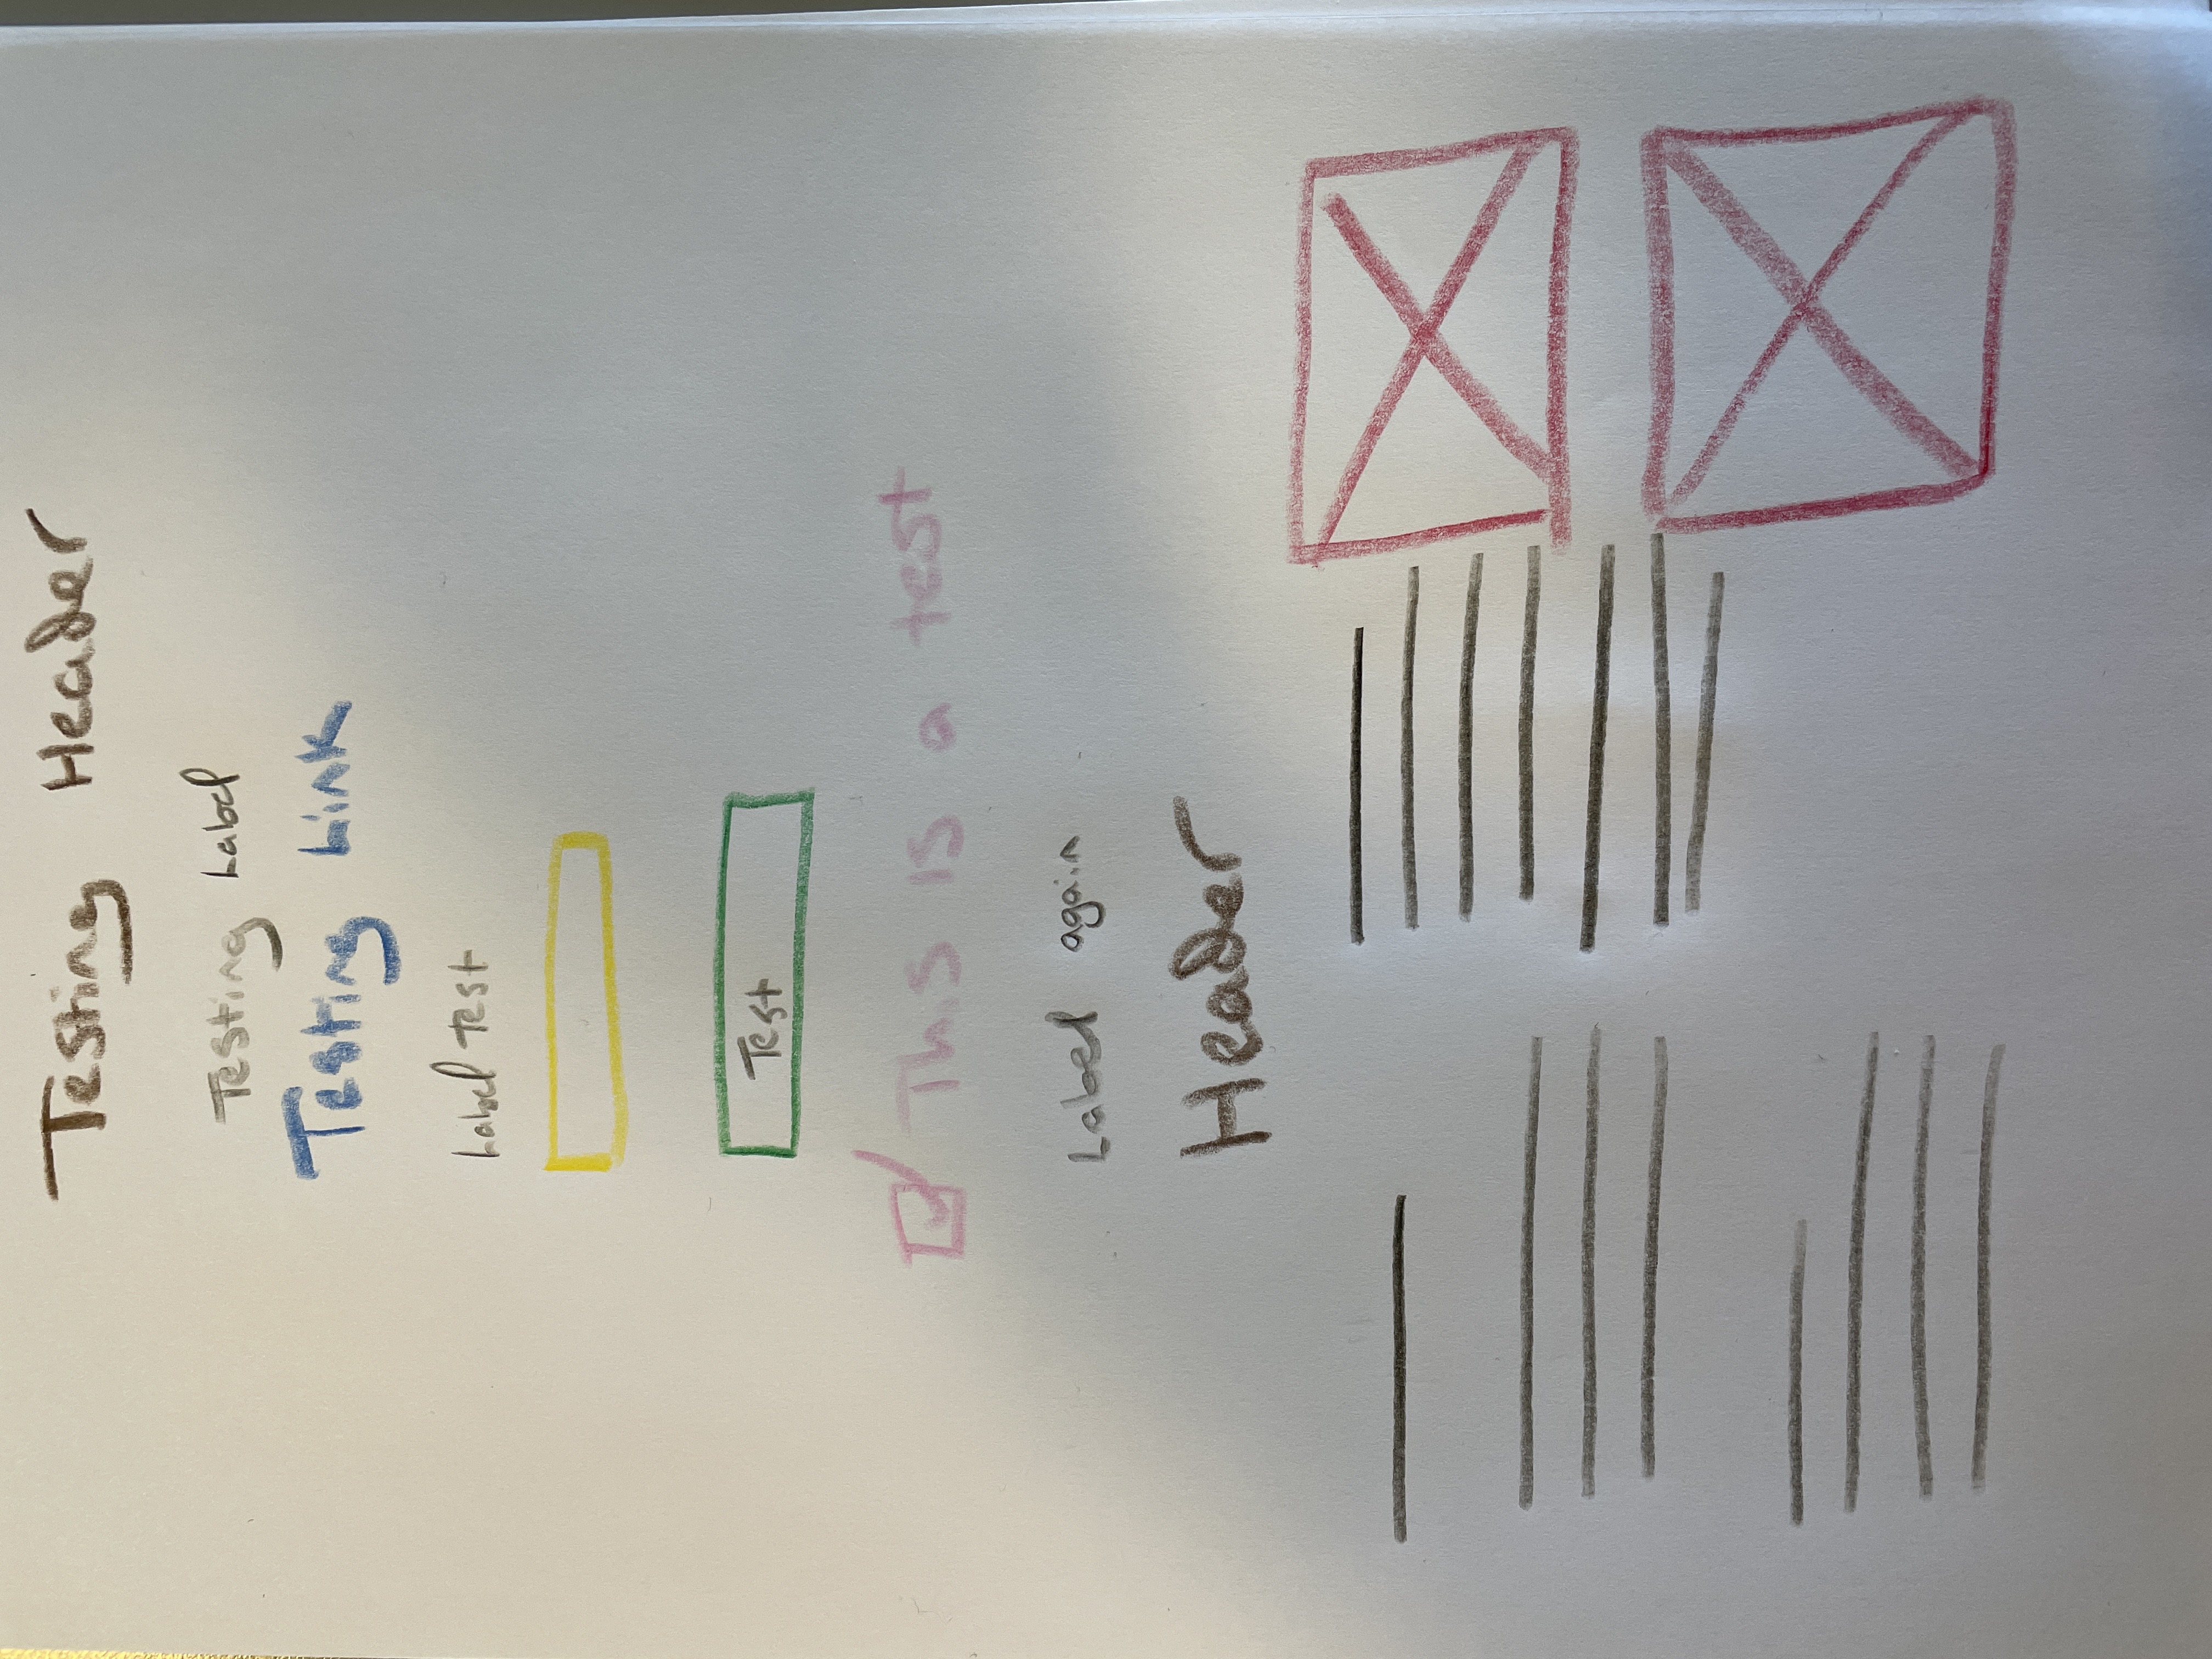 Testing Header
Testing Label
Testing Link
Label Test
Test
This is a test
Label again
Header